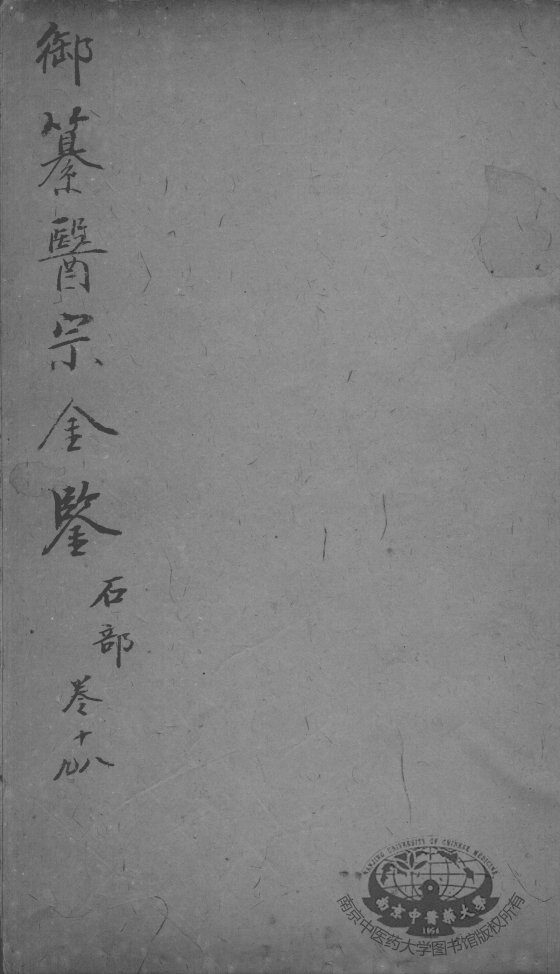 御纂醫宗金鑒
石部
卷十
九八
NANJING UNIVERSITY OF CHINESE MEDICINE
南京中醫藥大學
1954
南京中医药大学图书馆版权所有